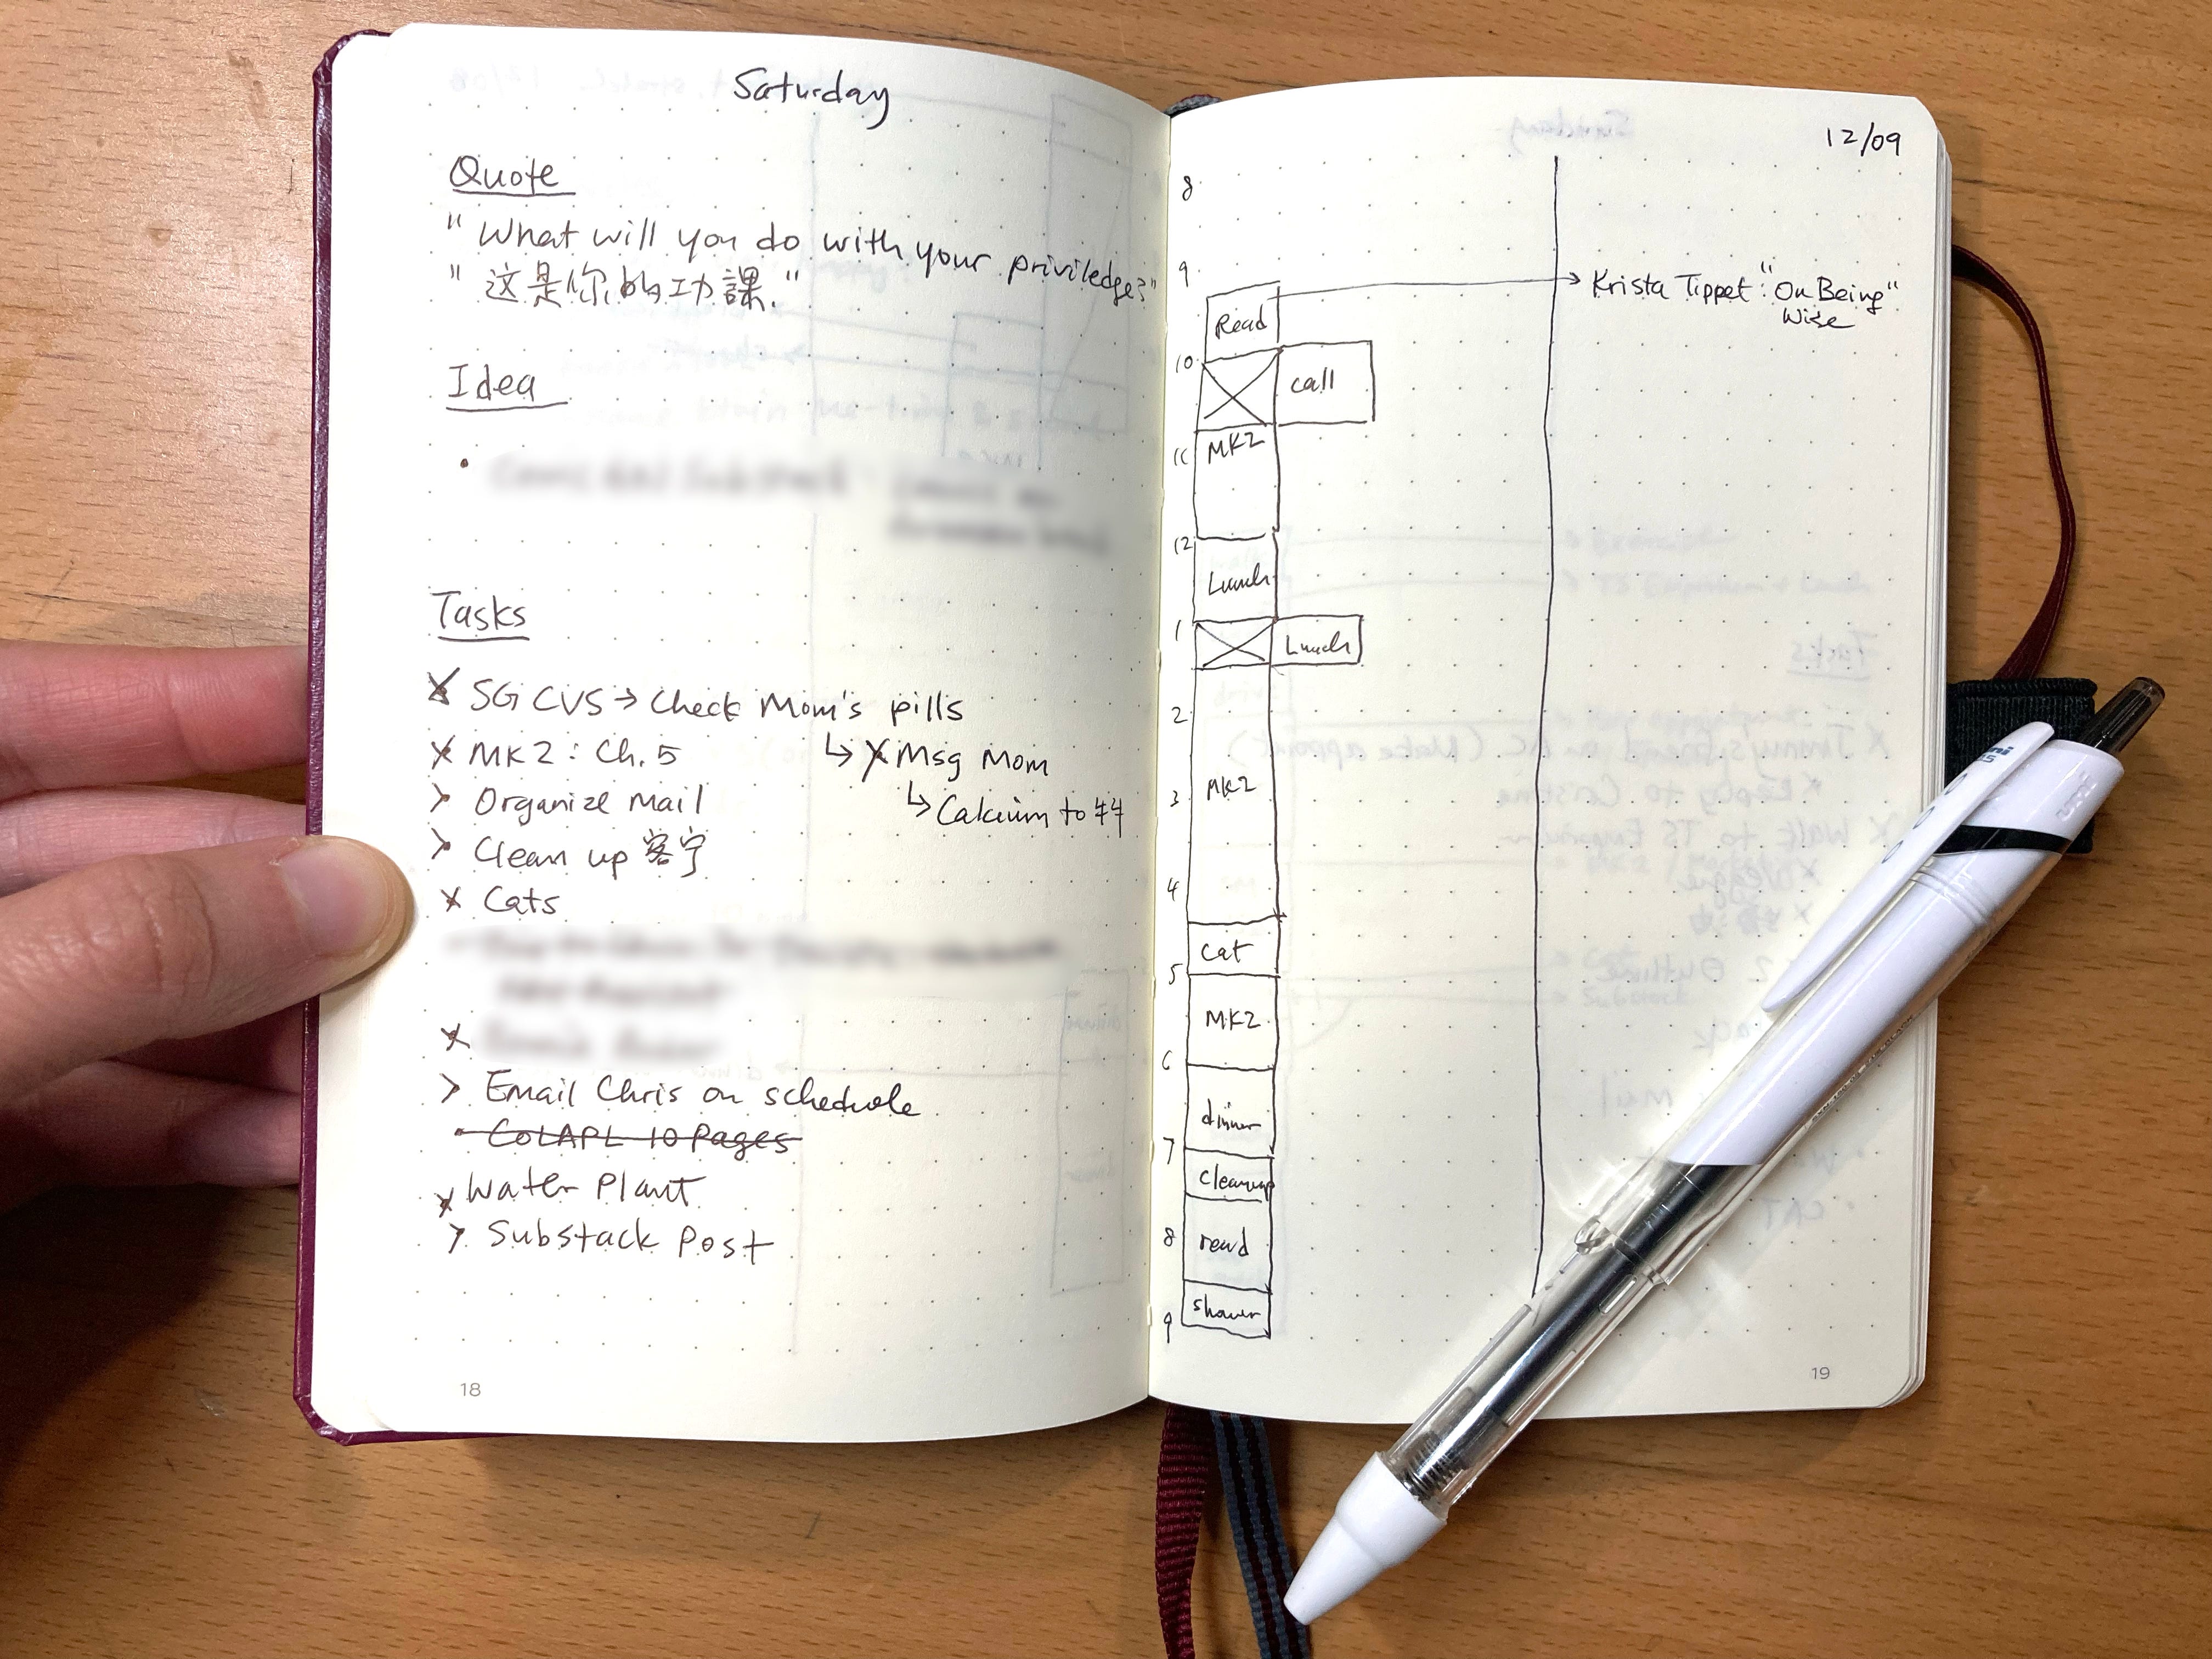 Saturday
Quote
"What will you do with your priviledge?"
"这是你的功課."
Idea
Tasks
X SG CVS → Check Mom's pills
X MK2: Ch. 5
↳ X Msg Mom
> Organize Mail
↳ Calcium to
> Clean up 客宁
X Cats
X
> Email Chris on schedule
• CoLAPL 10 Pages
X Water Plant
> Substack Post
18
12/09
8
9
→ Krista Tippet "On Being"
Wise
Read
10
call
MK2
11
12
Lunch
1
Lunch
2
MK2
3
4
Cat
5
MK2
6
dinner
7
Cleanup
8
read
shower
9
19
uni